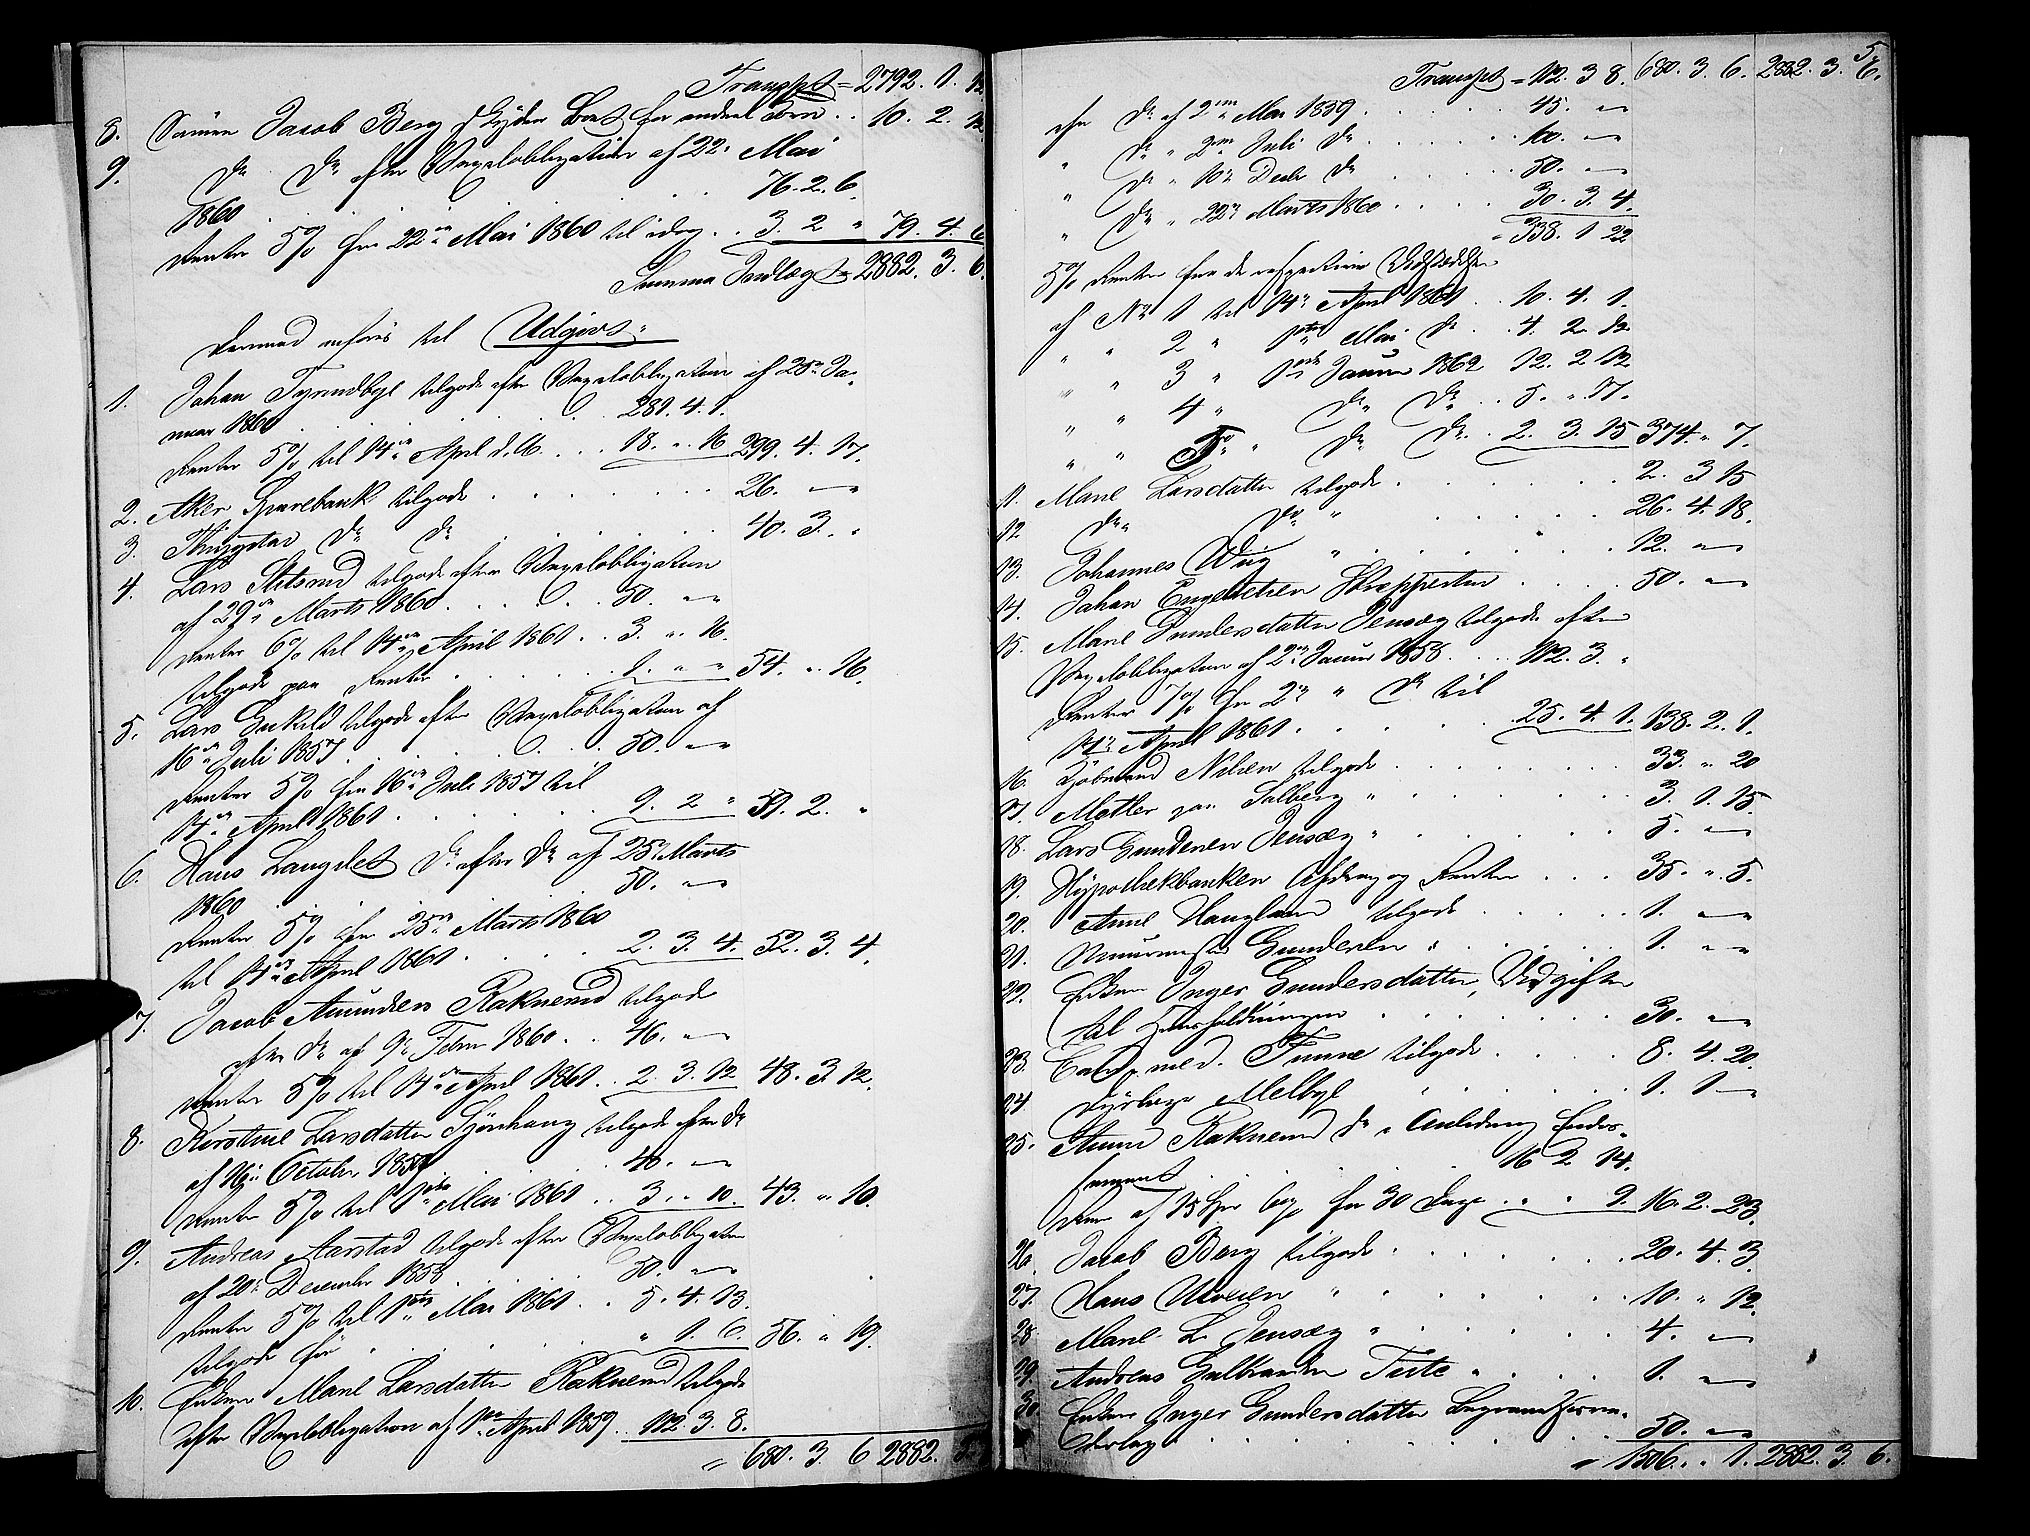 Transpt = 2792. 1. 12
8. Sønnen Jacob Berg f. Gyden Bons for endeel Korn . . 10. 2. 12
9. Do Do efter Vexelobligation af 22. Mai
1860 . . . . . 76. 2. 6.
Renter 5% fra 22de Mai 1860 til idag . . 3. 2 " 79. 4. 6
Summa Indtægt = 2882. 3. 6.
Dermod anføres til Udgivt:
1. Johan Tyrmdbye tilgode efter Vexelobligation af 25de Ja-
nuar 1860 . . . . . 281. 4. 1.
Renter 5% til 14de April d. A. . . . 18. " 16 299. 4. 17.
2. Aker Sparebank tilgode . . . . . 26. " "
3. Thingstad Do Do . . . . . 40. 3. "
4. Lars Stitsrud tilgode efter Vexelobligation
af 29de Marts 1860 . . . . 50. " "
Renter 6% til 14de April 1861 . . 3. " 16.
tilgode paa Renter . . . . 1. " " 54. " 16.
5. Lars Enkild tilgode efter Vexelobligation af
16de Juli 1857 . . . . 50. " "
Renter 5% fra 16de Juli 1857 til
14de April 1861 . . . . . 9. 2 " 59. 2. "
6. Hans Langslet Do efter Do af 25de Marts
1860 . . . . . 50. " "
Renter 5% fra 25de Marts 1860
til 14de April 1861 . . . . 2. 3. 4. 52. 3. 4.
7. Jacob Amundsen Raknerud tilgode
efter Do af 9de Febru 1860 . . 46. " "
Renter 5% til 14de April 1861 . . 2. 3. 12 48. 3. 12.
8. Kirstine Larsdatter Sjonhaug tilgode efter Do
af 16de October 1859 . . . 40. " "
Renter 5% til 1ste Mai 1861 . . 3. " 10. 43. " 10.
9. Andreas Aarstad tilgode efter Vexelobligation
af 20de December 1858 . . . 50. " "
Renter 5% til 1ste Mai 1861 . . 5. 4. 13.
tilgode før . . . . . " 1. 6. 56. " 19.
10. Enken Marie Larsdatter Raknerud tilgode
efter Vexelobligation af 1ste April 1859 . . 112. 3. 8.
= 680. 3. 6 2882. 3.
5
Transpt = 112. 3 8. 680. 3. 6. 2882. 3. 6.
efter Do af 2den Mai 1859 . . . . 45. " "
" Do " 2den Juli Do . . . . . 100. " "
" Do " 10de Decbr Do . . . . 50. " "
" Do " 22de Marts 1860 . . . . 30. 3. 4.
= 338. 1 22
5% Renter fra de respective Udstedelser
af No 1 til 14de April 1861 . . 10. 4. 1.
" " 2 " 1ste Mai Do . . 4. 2. 12.
" " 3 " 1ste Januar 1862 12. 2 12.
" " 4 " Do Do . . 5. " 17.
" " 5 " Do Do . . 2. 3. 15 374 " 7.
11. Marie Larsdatter tilgode . . . . . 2. 3 15
12 Do Do " . . . . . 26. 4. 18.
13. Johannes Wiig " . . . . . 12. " "
14. Johan Engebretsen Strepperstuen . . . . 50. " "
15. Marie Gundersdatter Jensæg tilgode efter
Vexelobligation af 2den Januar 1858 . . . 112. 3. "
Renter 7% fra 2den " Do til
14de April 1861 . . . . 25. 4. 1. 138. 2. 1.
16. Kjøbmand Nilsen tilgode . . . . . 33. " 20
17. Møller paa Solberg " . . . . . 3. 1. 15.
18. Lars Gundersen Jensæg " . . . . . 5. " "
19. Hypothekbanken Afdrag og Renter . . . 35. " 5.
20. Anne Haugland tilgode . . . . . 1. " "
21. Muurmester Gundersen " . . . . . 1. " "
22. Enken Inger Gundersdatter, Udgifter
til Huusholdningen . . . . . 30. " "
23. Cand. med. Finne tilgode . . . . 8. 4. 20.
24 Dyrlæge Melbye . . . . . 1. 1 "
25. Amund Raknerud Do i Anledning Endos-
sement . . . 16 2 14.
Rente af 15 Spd 6% for 30 Dage . . " " 9. 16. 2. 23.
26. Jacob Berg tilgode . . . . . 20. 4. 3.
27. Hans Ulvesen " . . . . . 10. " 12.
28. Marie L. Jensæg " . . . . . 4. " "
29. Andreas Gulbrandsen Teite " . . . . 1. " "
30 Enken Inger Gundersdatter Begravelsesom-
kostninger . . . . . 50. " "
= 1506. " 1. 2882. 3. 6.